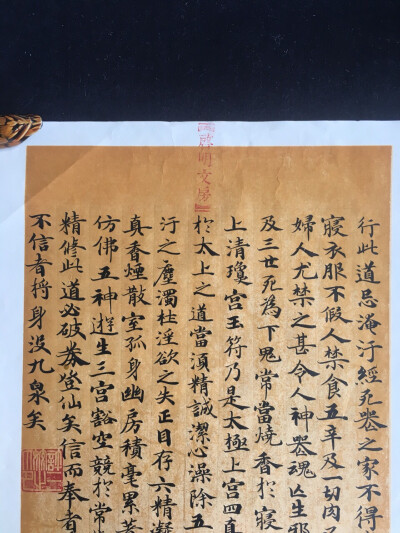 『啟明文房』
行此道忌淹汙經死喪之家不得
寢衣服不假人禁食五辛及一切肉
婦人尤禁之甚令人神喪魂亡生邪
及三世死為下鬼常當燒香於寢
上清瓊宮玉符乃是太極上宮四真
於太上之道當須精誠潔心澡除五
汙之塵濁杜淫欲之失正目存六精凝
真香煙散室孤身幽房積毫累著
仿佛五神遊生三宮豁空競於常
精修此道必破券登仙矣信而奉者
不信者將身沒九泉矣